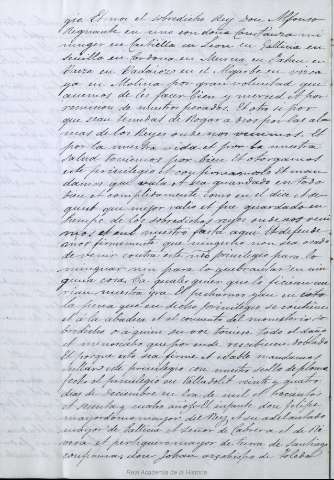 gia Et nos el sobredicho Rey don Alfonso
Regnante en uno con doña Constanza mi
muger en Castiella en Leon en Gallicia en
Sevilla en Cordova en Murcia en Jahen en
Baeza en Badaioz en el Algarbe en Vizca
ya en Molina por gran voluntad que
avemos de les facer bien y merced et por
remision de nuestros pecados. Et otro si por
que sean tenudas de Rogar a dios por las al
mas de los Reyes onde nos venimos. Et
por la nuestra vida et por la nuestra
salud tenemos por bien et otorgamos
este privilegio et confirmamoslo Et man
damos que vala et sea guardado en todo
bien et complidamente como en el dice et segun
que mejor valio et fue guardado en
tiempo de los sobredichos reyes onde nos veni
mos et en el nuestro fasta aqui Et defende
mos firmemente que ninguno non sea osado
de venir contra este privilegio para lo
minguar nin para lo quebrantar en nin
guna cosa Ca qualquier que lo ficiere au
rie nuestra yra et pecharnos y en coto
la pena que en dicho privilegio se contiene
et a la abadesa et al convento del monesterio so
bredicho o a quien su voz toviere todo el daño
et menoscabo que por ende recibiesen doblado
Et porque esto sea firme et estable mandamos
sellar este privilegio con nuestro sello de plomo
fecho el privilegio en Valladolit veinte y quatro
dias de Decembre en Era de mil et trecientos
et treinta y cuatro años Et infante don felipe
mayordomo mayor del Rey et su adelantado
mayor de Gallicia et señor de Cabrera et de Ri
vera et pertiguero mayor de tierra de Santiago
confirma, don Johan arzobispo de Toledo
Real Academia de la Historia